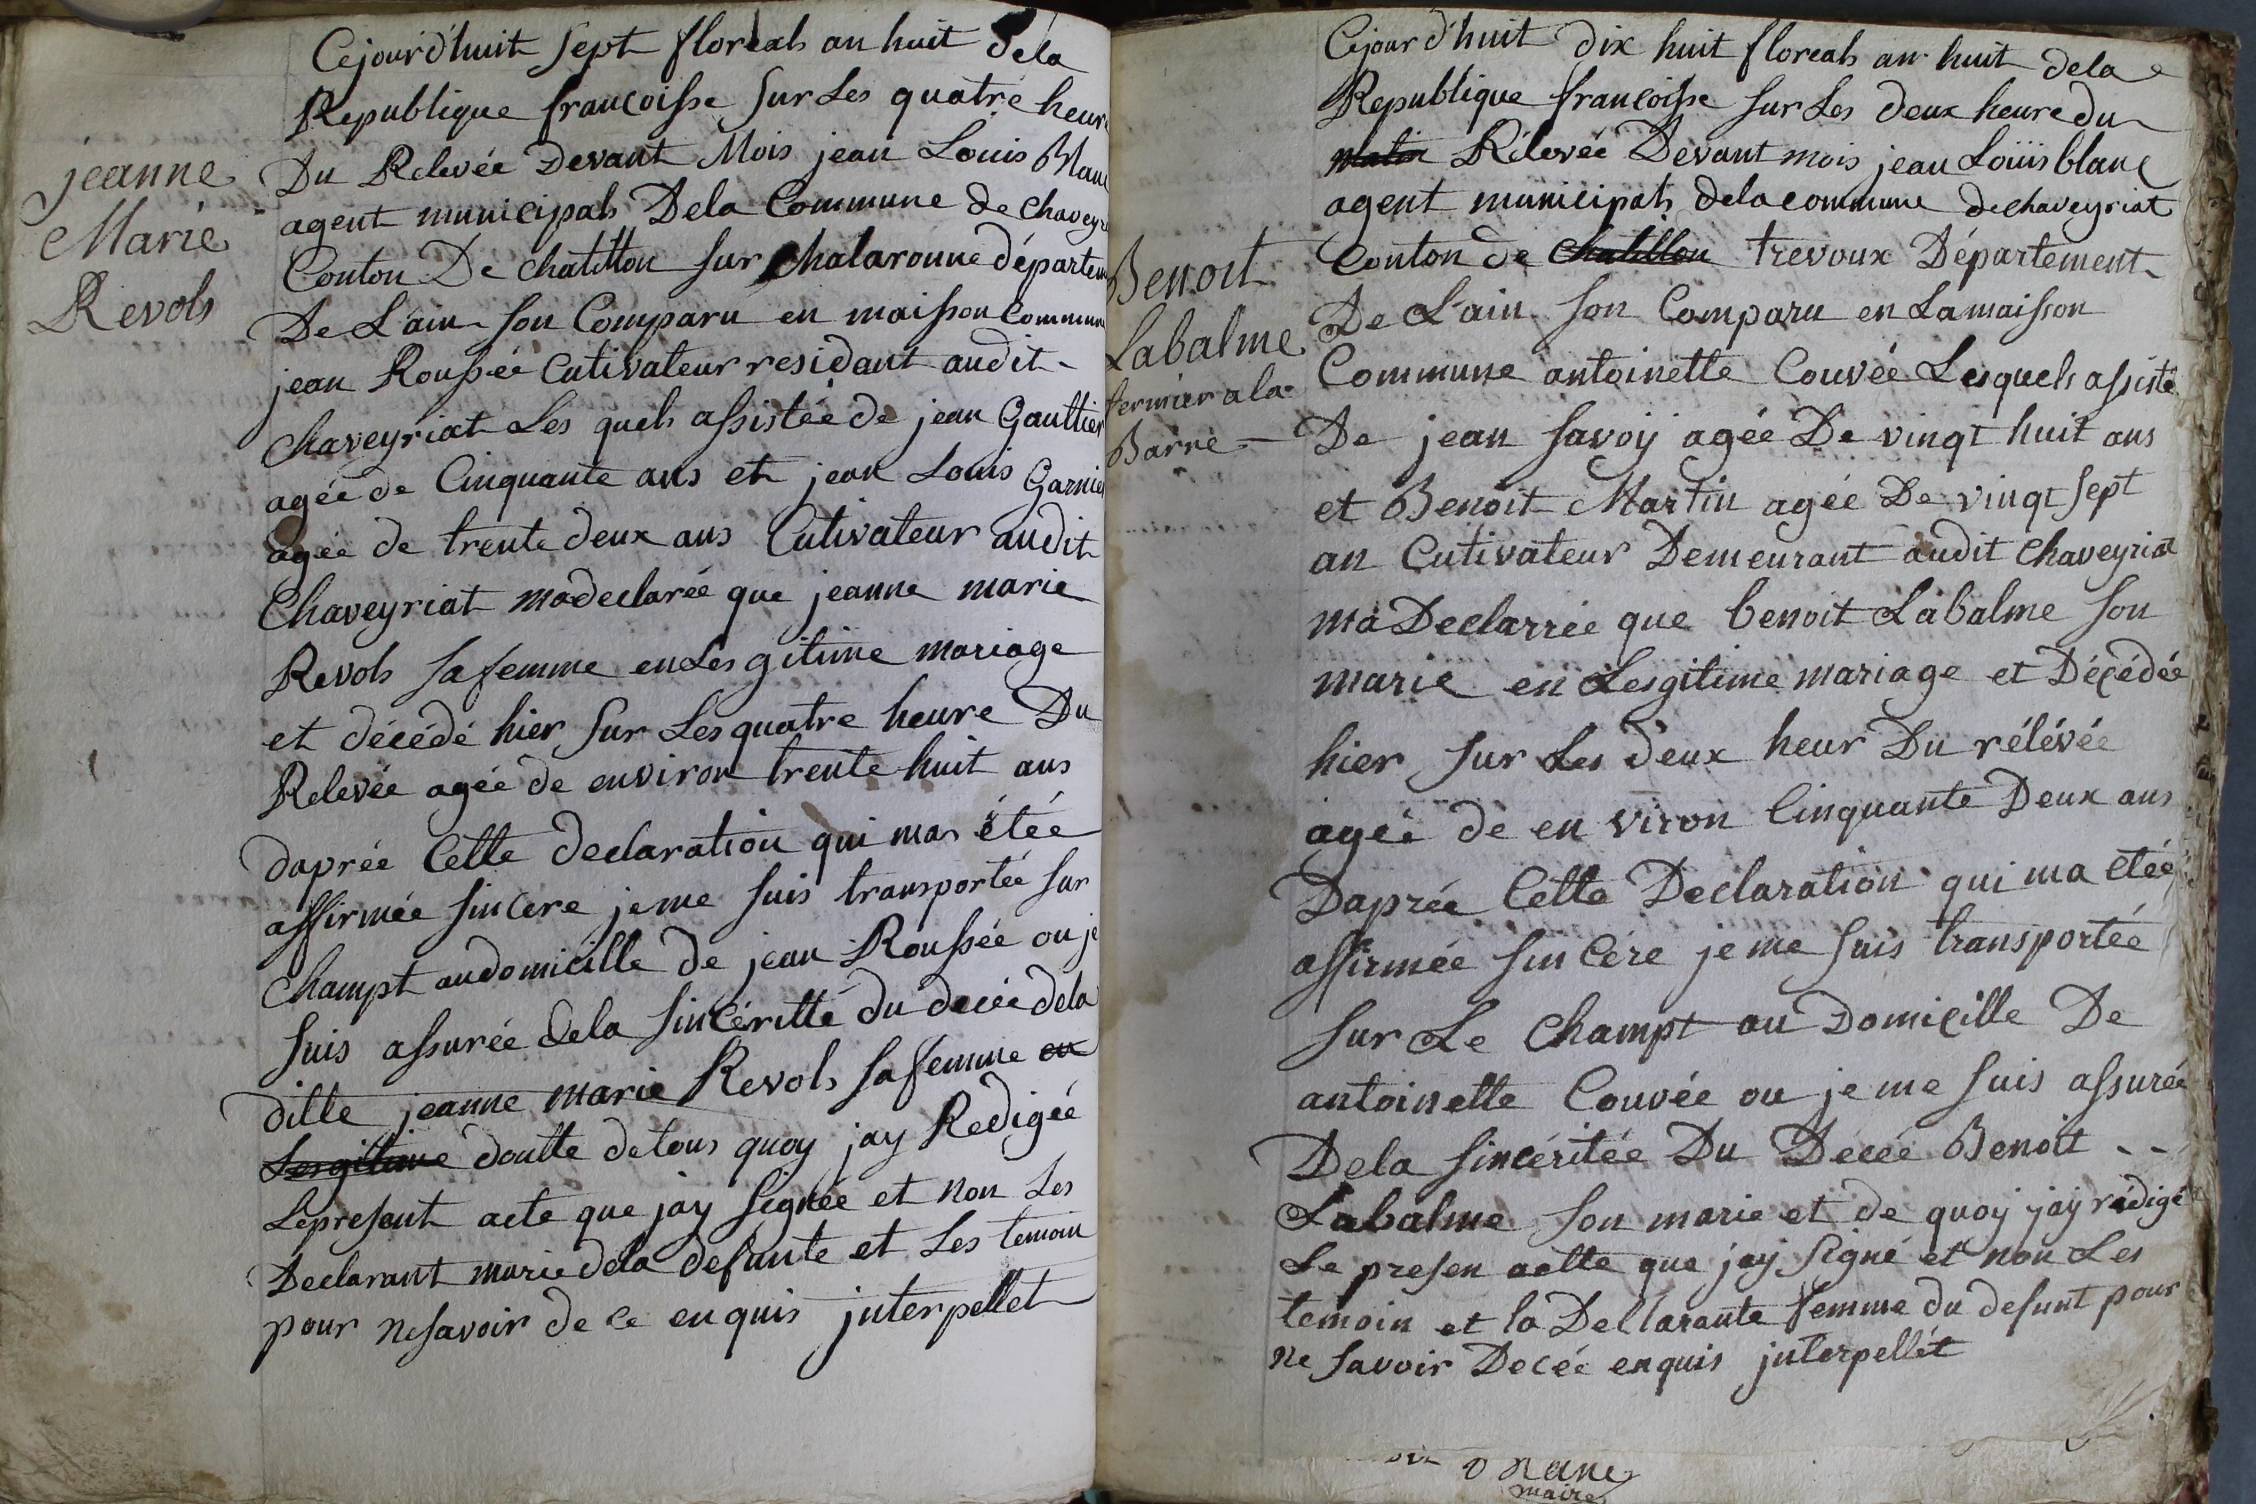 jeanne
Marie
Revols
Cejourd'huit sept floreals an huit dela
Republique francoisse sur Les quatre heure
Du Relevée Devant Mois jean Louis Blanc
agent municipals Dela Commune de chaveyr
Conton De chatillon sur chalaronne départem
De L'ain son Comparu en maisson Commune
jean Roussée Cutivateur residant audit
chaveyriat Les quels assistée de jean Gaultier
agée de Cinquante ans et jean Louis Garnier
agée de trente deux ans Cutivateur audit
Chaveyriat ma declarée que jeanne marie
Revols sa femme en Les gitime mariage
et décédé hier sur Les quatre heure Du
Relevée agée de environ trente huit ans
daprée Cette declaration qui mas étée
affirmée sincere je me suis transportée sur
champt audomicille de jean Roussée ou je
suis assurée dela sincéritté du decée dela
ditte jeanne marie Revols sa femme en
Lesgitime doutte de tous quoy jay Redigée
Lepresent acte que jay signée et non Les
Declarant marie dela defunte et Les temoin
pour nesavoir de ce enquis jnterpellet
Benoit
Labalme
fermier ala
Barre
Cejourd'huit dix huit floreals an huit dela
Republique francoisse sur Les deux heure du
matin Rélevée Devant mois jean Loüis blanc
agent municipals dela commune de chaveyriat
Conton de chatillon trevoux Département
De L'ain son Comparu en La maisson
Commune antoinette Couvée Lesquels assisté
De jean savoÿ agée De vingt huit ans
et Benoit Martin agée De vingt sept
an Cutivateur Demeurant audit chaveyriat
ma Declarrée que benoit Labalme son
marie en Lesgitime mariage et Décédée
hier sur Les deux heur Du rélévée
agée de en viron Cinquante Deux ans
Daprée Cette Declaration qui ma etée
affirmée sin Cére je me suis transportée
sur Le champt au Domicille De
antoinette Couvée ou je me suis assurée
Dela sincéritée Du Decée Benoit --
Labalme son marie et de quoÿ jaÿ rédigé
Le presen actte que jaÿ signé et non Les
temoin et la Dellarante femme du defunt pour
ne savoir Decée enquis jnterpellét
maire